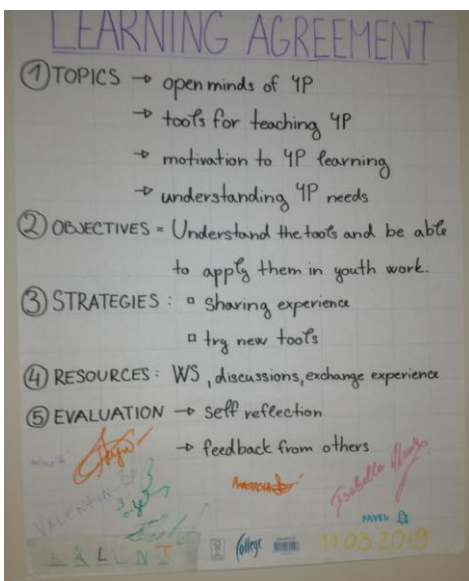 LEARNING AGREEMENT
① TOPICS → open minds of YP
→ tools for teaching YP
→ motivation to YP learning
→ understanding YP needs
② OBJECTIVES = Understand the tools and be able
to apply them in youth work.
③ STRATEGIES : ▫ sharing experience
▫ try new tools
④ RESOURCES : WS, discussions, exchange experience
⑤ EVALUATION → self reflection
→ feedback from others
VALENTIN
Isabella
PAVEL
College
11 03 2019